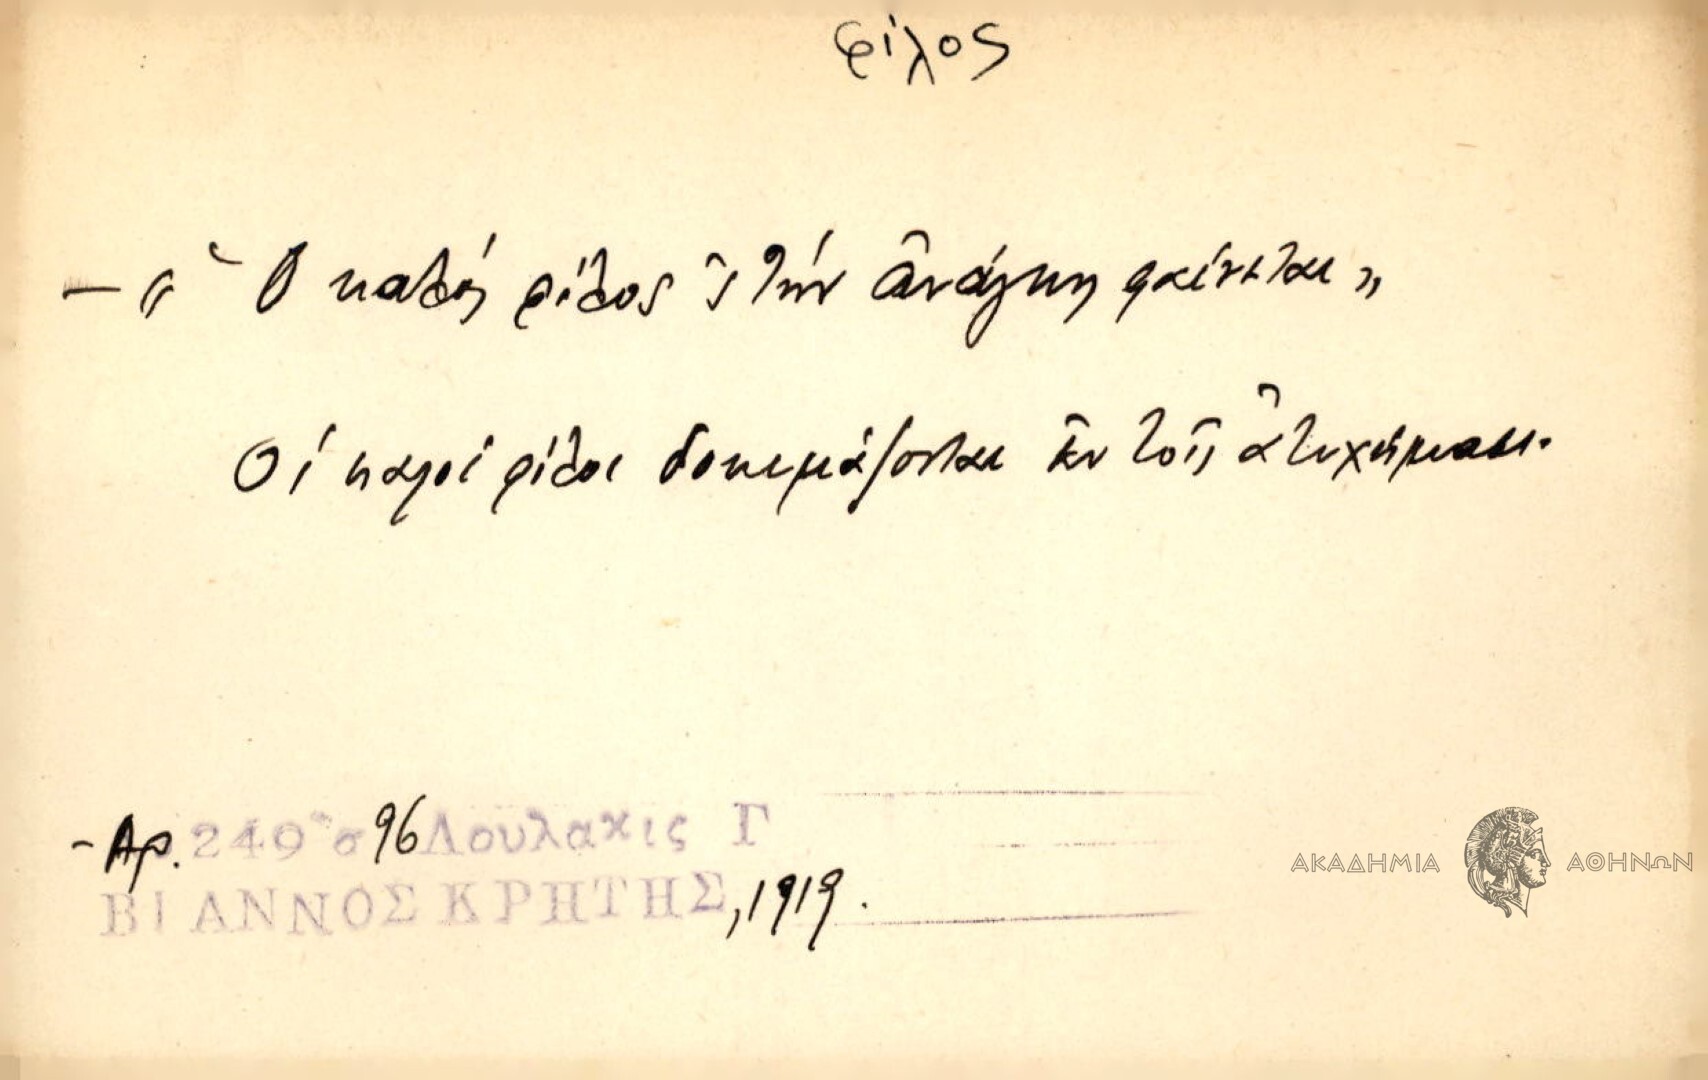 φίλος
— « Ὁ καλός φίλος 'ς τήν ἀνάγκη φαίνεται »
Οἱ καλοί φίλοι δοκιμάζονται ἐν τοῖς ἀτυχήμασι.
- Αρ. 249 σ 96 Λουλακις Γ
ΒΙΑΝΝΟΣ ΚΡΗΤΗΣ, 1919.
ΑΚΑΔΗΜΙΑ ΑΘΗΝΩΝ